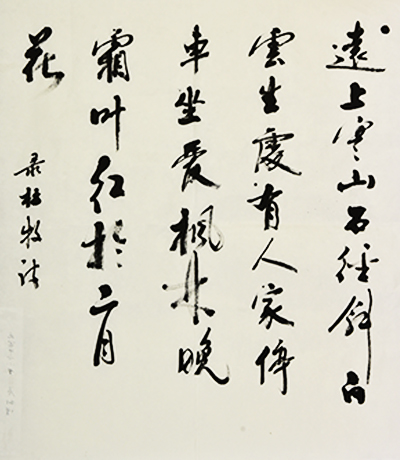 遠上寒山石径斜白
雲生處有人家停
車坐愛楓林晚
霜叶红於二月
花
录杜牧诗